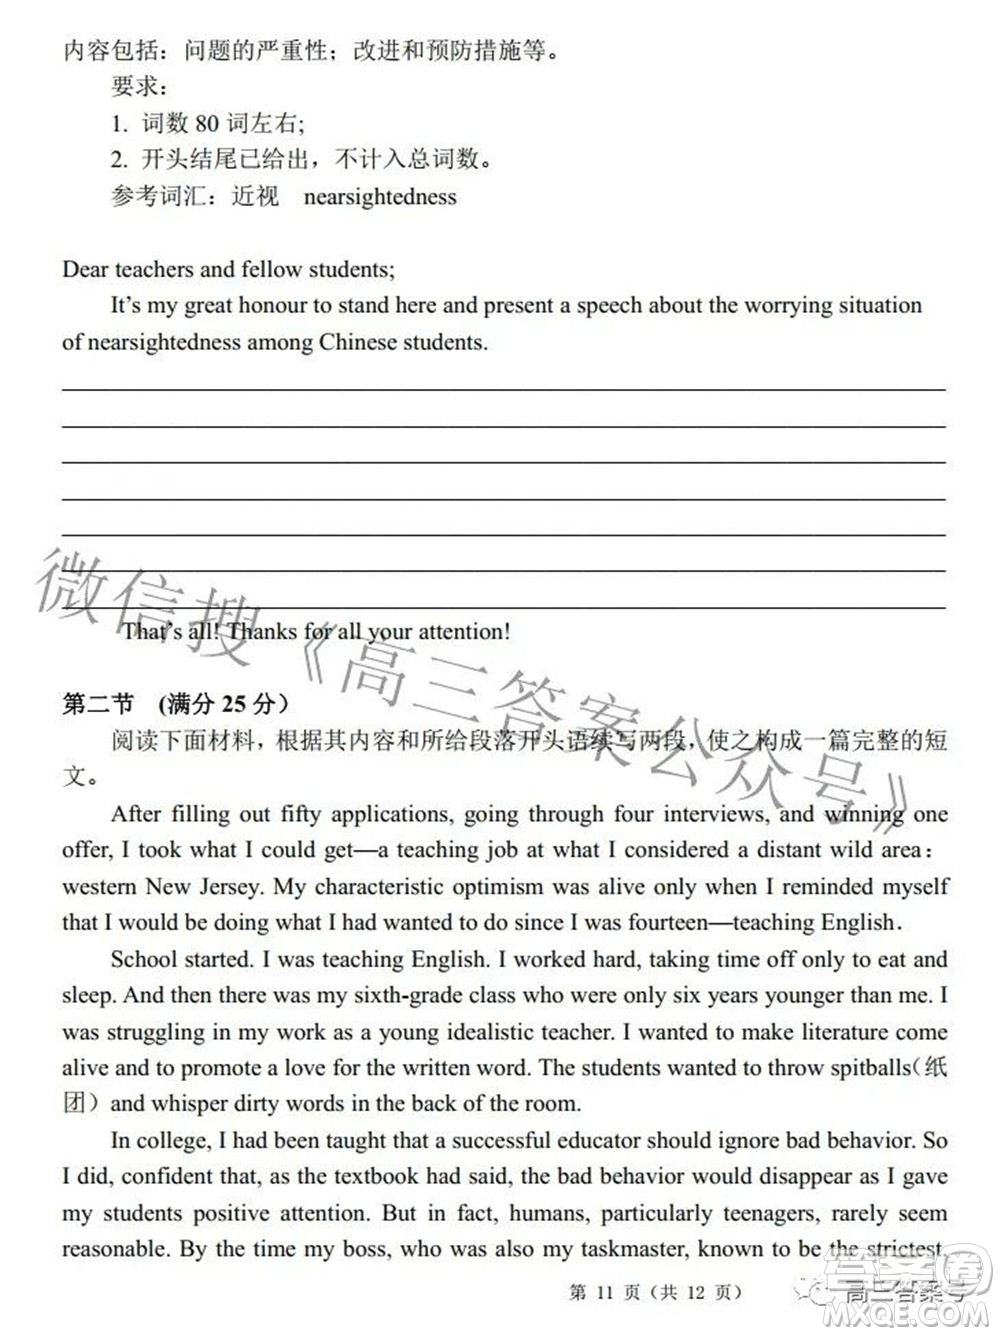 内容包括：问题的严重性；改进和预防措施等。
要求：
1. 词数 80 词左右;
2. 开头结尾已给出，不计入总词数。
参考词汇：近视 nearsightedness
Dear teachers and fellow students;
It's my great honour to stand here and present a speech about the worrying situation
of nearsightedness among Chinese students.
That's all! Thanks for all your attention!
第二节 (满分 25 分）
阅读下面材料，根据其内容和所给段落开头语续写两段，使之构成一篇完整的短
文。
After filling out fifty applications, going through four interviews, and winning one
offer, I took what I could get—a teaching job at what I considered a distant wild area：
western New Jersey. My characteristic optimism was alive only when I reminded myself
that I would be doing what I had wanted to do since I was fourteen—teaching English.
School started. I was teaching English. I worked hard, taking time off only to eat and
sleep. And then there was my sixth-grade class who were only six years younger than me. I
was struggling in my work as a young idealistic teacher. I wanted to make literature come
alive and to promote a love for the written word. The students wanted to throw spitballs（纸
团）and whisper dirty words in the back of the room.
In college, I had been taught that a successful educator should ignore bad behavior. So
I did, confident that, as the textbook had said, the bad behavior would disappear as I gave
my students positive attention. But in fact, humans, particularly teenagers, rarely seem
reasonable. By the time my boss, who was also my taskmaster, known to be the strictest,
第 11 页（共 12 页）
微信搜《高三答案公众号》
高三答案号
答案圈
MXQE.COM